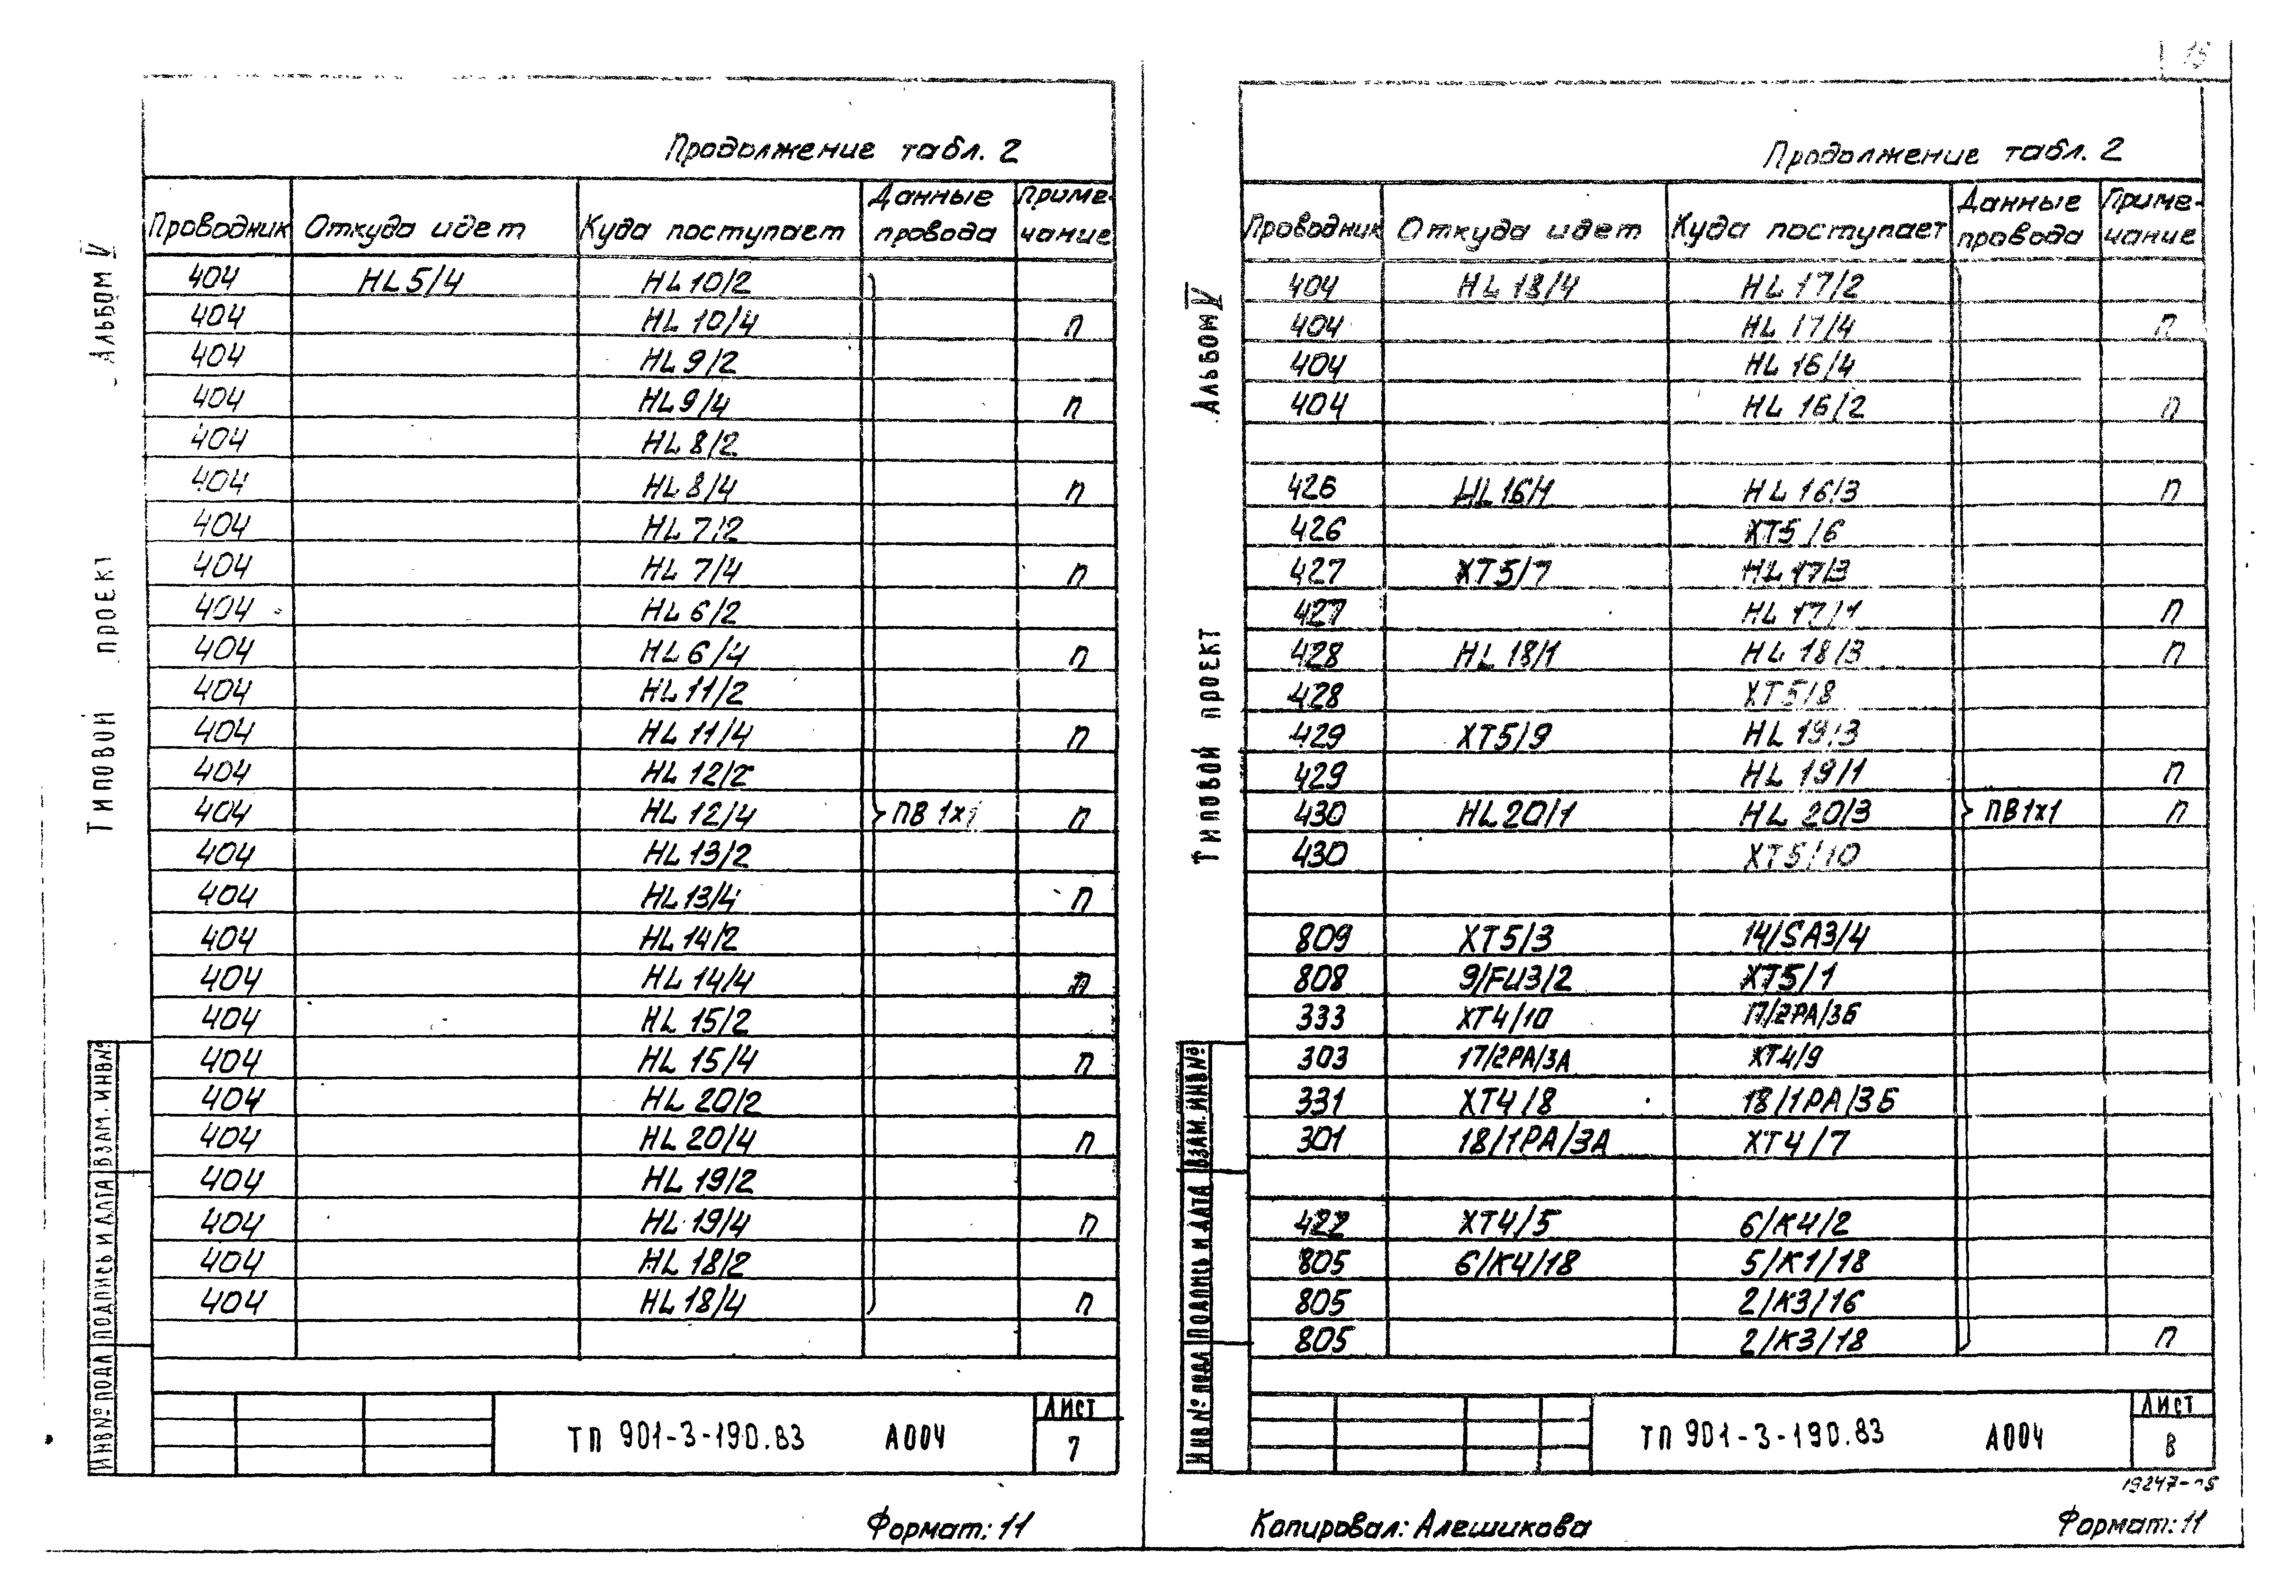 Продолжение табл. 2
Проводник Откуда идет Куда поступает Данные провода Примечание
404 HL5/4 HL10/2
404 HL10/4 п
404 HL9/2
404 HL9/4 п
404 HL8/2
404 HL8/4 п
404 HL7/2
404 HL7/4 п
404 HL6/2
404 HL6/4 п
404 HL11/2
404 HL11/4 п
404 HL12/2
404 HL12/4 ПВ 1х1 п
404 HL13/2
404 HL13/4 п
404 HL14/2
404 HL14/4 п
404 HL15/2
404 HL15/4 п
404 HL20/2
404 HL20/4 п
404 HL19/2
404 HL19/4 п
404 HL18/2
404 HL18/4 п
ТП 901-3-190.83 А004
Лист
7
Формат: 11
Альбом IV
Типовой проект
Инв№подл Подпись и дата Взам.инв№
Продолжение табл. 2
Проводник Откуда идет Куда поступает Данные провода Примечание
404 HL18/4 HL17/2
404 HL17/4 п
404 HL16/4
404 HL16/2 п
426 HL16/1 HL16/3 п
426 XT5/6
427 XT5/7 HL17/3
427 HL17/1 п
428 HL18/1 HL18/3 п
428 XT5/8
429 XT5/9 HL19/3
429 HL19/1 п
430 HL20/1 HL20/3 ПВ1х1 п
430 XT5/10
809 XT5/3 14/SA3/4
808 9/FU3/2 XT5/1
333 XT4/10 17/2РА/3Б
303 17/2РА/3А XT4/9
331 XT4/8 18/1РА/3Б
301 18/1РА/3А XT4/7
422 XT4/5 6/К4/2
805 6/К4/18 5/К1/18
805 2/К3/16
805 2/К3/18 п
ТП 901-3-190.83 А004
Лист
8
Копировал: Алешикова
Формат: 11
Альбом IV
Типовой проект
Инв№подл Подпись и дата Взам.инв№